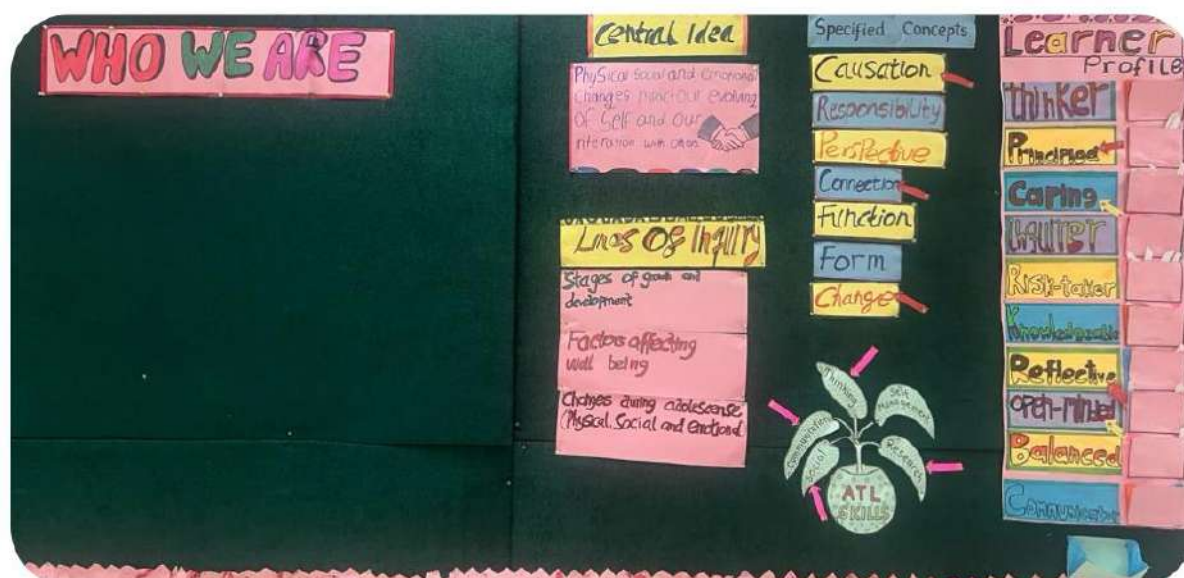 WHO WE ARE
Central Idea
Physical social and emotional
Changes our evolving
Of Self and our
with
Lines Of Inquiry
Stages of growth and
development
Factors affecting
well being
Changes during adolescense
(Physical, Social and emotional
Specified Concepts
Causation
Responsibility
Perspective
Connection
Function
Form
Change
Thinking
Self
management
Communication
Social
Research
ATL
SKILLS
Learner
Profile
thinker
Principled
Caring
Inquirer
Risk-taker
Knowledgeable
Reflective
open-minded
Balanced
Communicator